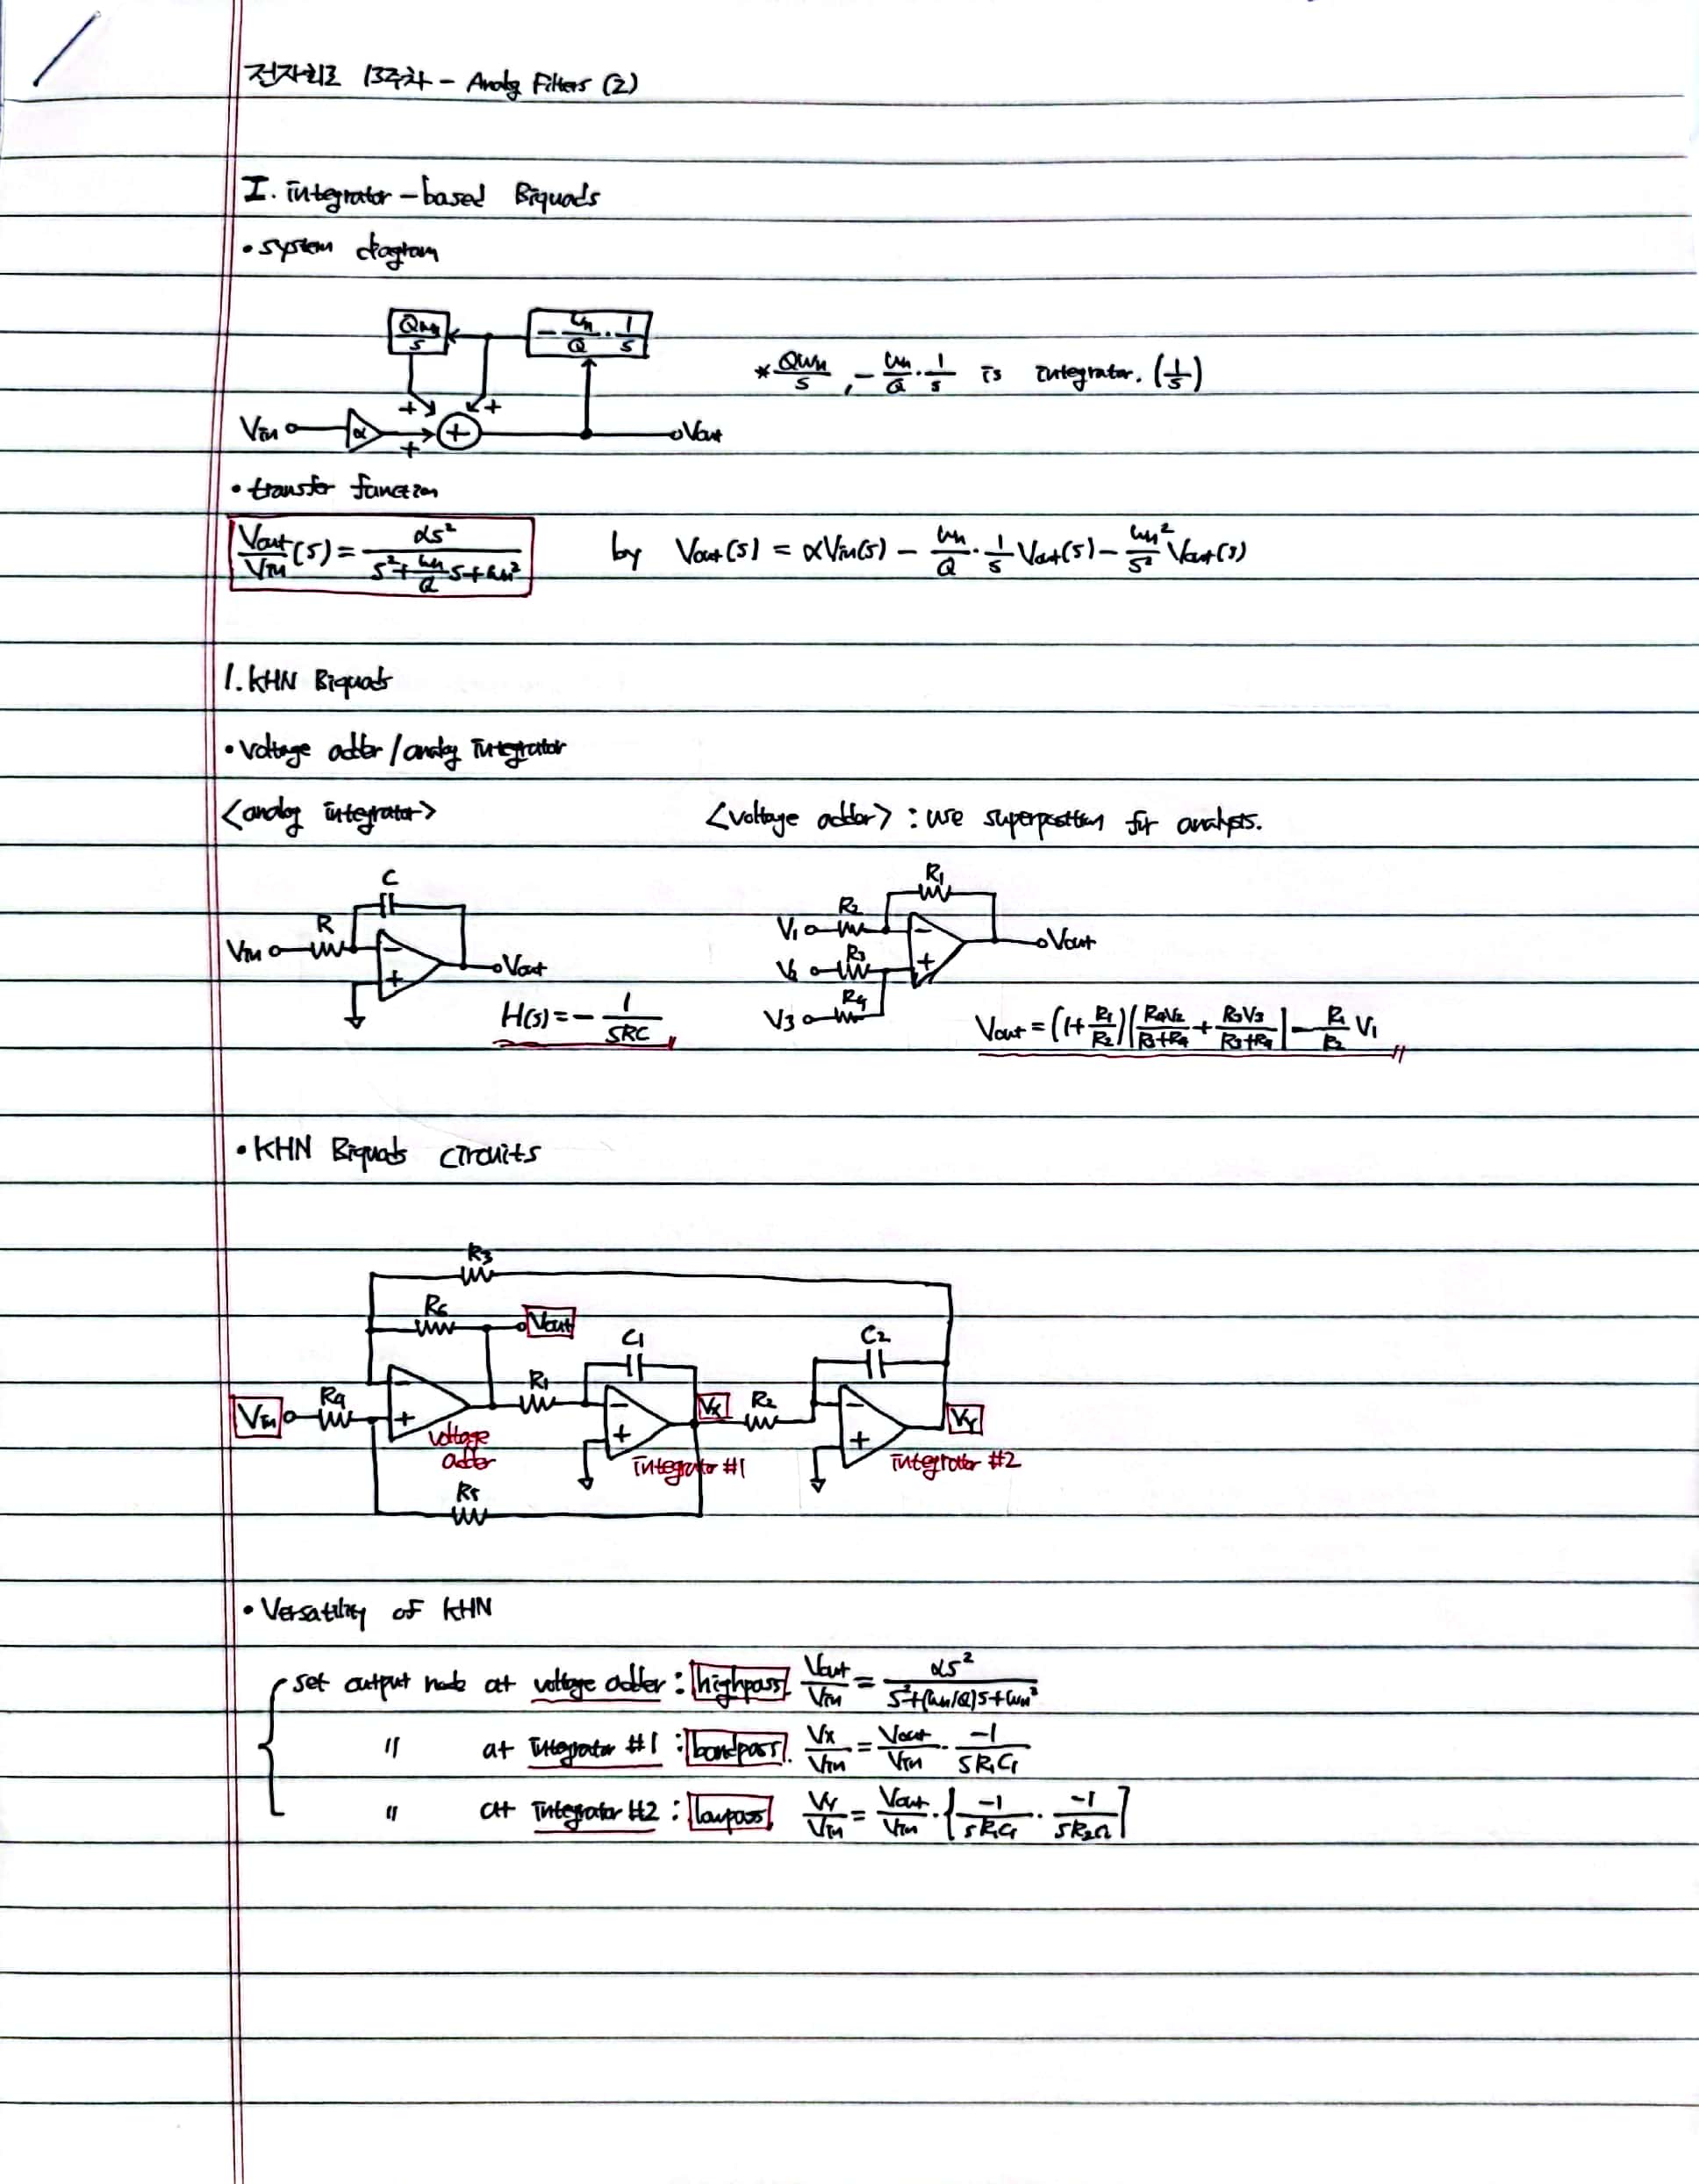 전자회로 13주차 - Analog Filters (2)
I. integrator-based Biquads
• system diagram
Qωn/s
-ωn/Q · 1/s
* Qωn/s , -ωn/Q · 1/s is integrator. (1/s)
+ +
Vin α + + Vout
• transfer function
Vout/Vin (s) = αs²/(s² + (ωn/Q)s + ωn²) by Vout(s) = αVin(s) - ωn/Q · 1/s Vout(s) - ωn²/s² Vout(s)
1. KHN Biquads
• Voltage adder / analog integrator
<analog integrator> <voltage adder> : use superposition for analysis.
C
R
Vin - + Vout
H(s) = - 1/(sRC)
R1
V1 R2 -
V2 R3 + Vout
V3 R4
Vout = (1 + R1/R2)(R4V2/(R3+R4) + R3V3/(R3+R4)) - R1/R2 V1
• KHN Biquads circuits
R3
R6 Vout
C1 C2
Vin R4 - + R1 - + Vx R2 - + VY
voltage adder
integrator #1
integrator #2
R5
• Versatility of KHN
set output node at voltage adder : highpass. Vout/Vin = αs²/(s²+(ωn/Q)s+ωn²)
〃 at integrator #1 : bandpass. Vx/Vin = Vout/Vin · -1/(sR1C1)
〃 at integrator #2 : lowpass. VY/Vin = Vout/Vin · {-1/(sR1C1) · -1/(sR2C2)}